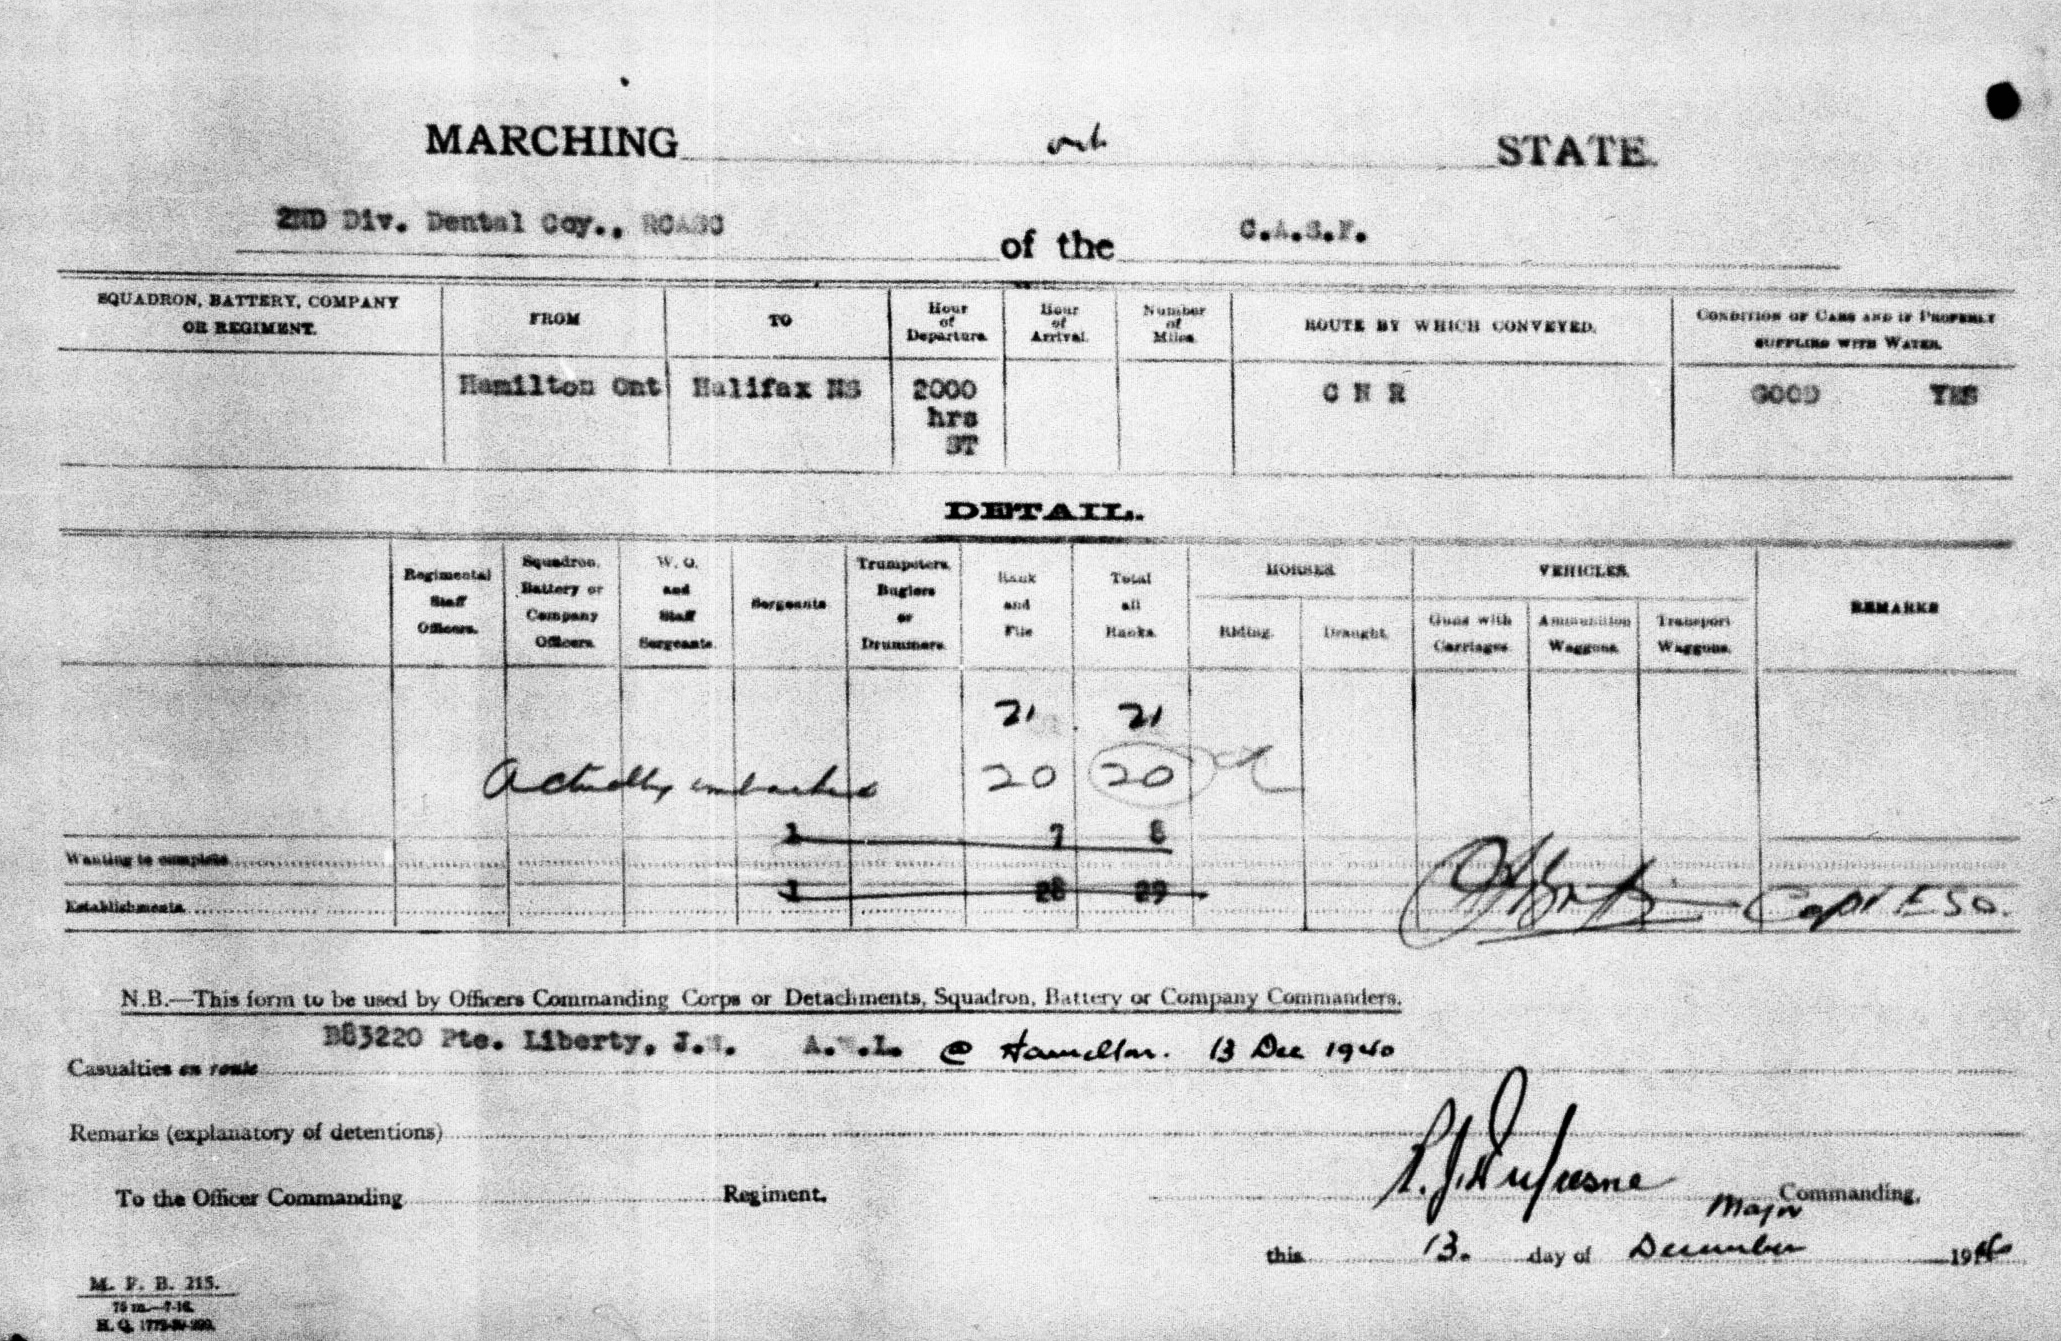 MARCHING out STATE.
2ND Div. Dental Coy., RCASC of the C.A.S.F.
SQUADRON, BATTERY, COMPANY OR REGIMENT.
FROM
TO
Hour of Departure.
Hour of Arrival.
Number of Miles.
ROUTE BY WHICH CONVEYED.
CONDITION OF CARS AND IF PROPERLY SUPPLIED WITH WATER.
Hamilton Ont Halifax NS 2000 C N R GOOD YES
hrs
ST
DETAIL.
Regimental Staff Officers.
Squadron, Battery or Company Officers.
W. O. and Staff Sergeants.
Sergeants
Trumpeters, Buglers or Drummers.
Rank and File
Total all Ranks.
HORSES
Riding.
Draught.
VEHICLES.
Guns with Carriages.
Ammunition Waggons.
Transport Waggons.
REMARKS
21 21
Actually embarked 20 20
1 7 8
Wanting to complete
1 28 29
Establishments
Capt ESO.
N.B.—This form to be used by Officers Commanding Corps or Detachments, Squadron, Battery or Company Commanders.
B83220 Pte. Liberty, J.W. A.W.L. @ Hamilton. 13 Dec 1940
Casualties en route
Remarks (explanatory of detentions)
To the Officer Commanding Regiment. Commanding,
Major
this 13. day of December 1940
M. F. B. 215.
75 m.—7-16.